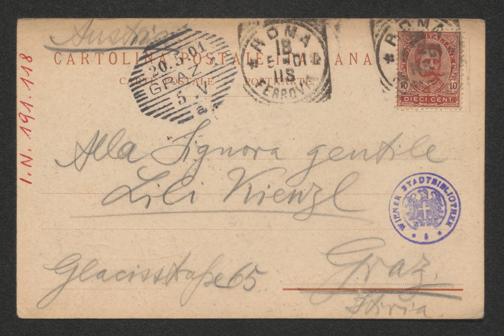 Austria
CARTOLINA POSTALE ITALIANA
CARTE POSTALE
ROMA
18
5-01
11S
FERROVIA
* ROMA
20.5.01
GRAZ
5
DIECI CENT.
10
10
I.N. 191.118
Alla Signora gentile
Lili Kienzl
WIENER STADTBIBLIOTHEK
Glacisstraße 65
Graz.
Stiria.